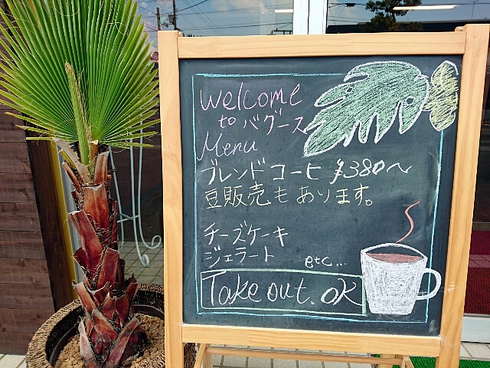 Welcome
to バグース
Menu
ブレンドコーヒ ¥380〜
豆販売もあります。
チーズケーキ
ジェラート etc...
Take out. OK